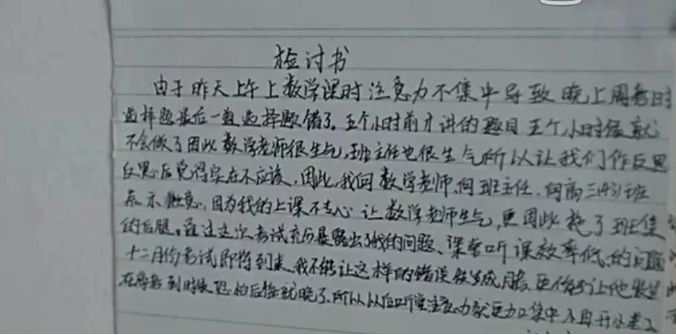 检讨书
由于昨天上午上数学课时注意力不集中导致晚上周考时
选择题最后一道选择题错了。五个小时前才讲的题目五个小时后就
不会做了因此数学老师很生气,班主任也很生气所以让我们作反思
反思后觉得实在不应该。因此,我向数学老师,向班主任,向高三班
表示歉意。因为我的上课不专心让数学老师生气,更因此拖了班集
的后腿。通过这次考试充分暴露出了我的问题、课堂听课效率低的问题
十二月份考试即将到来,我不能让这样的错误
到时候恐怕后悔就晚了。所以以后听课注意力就更力口集中